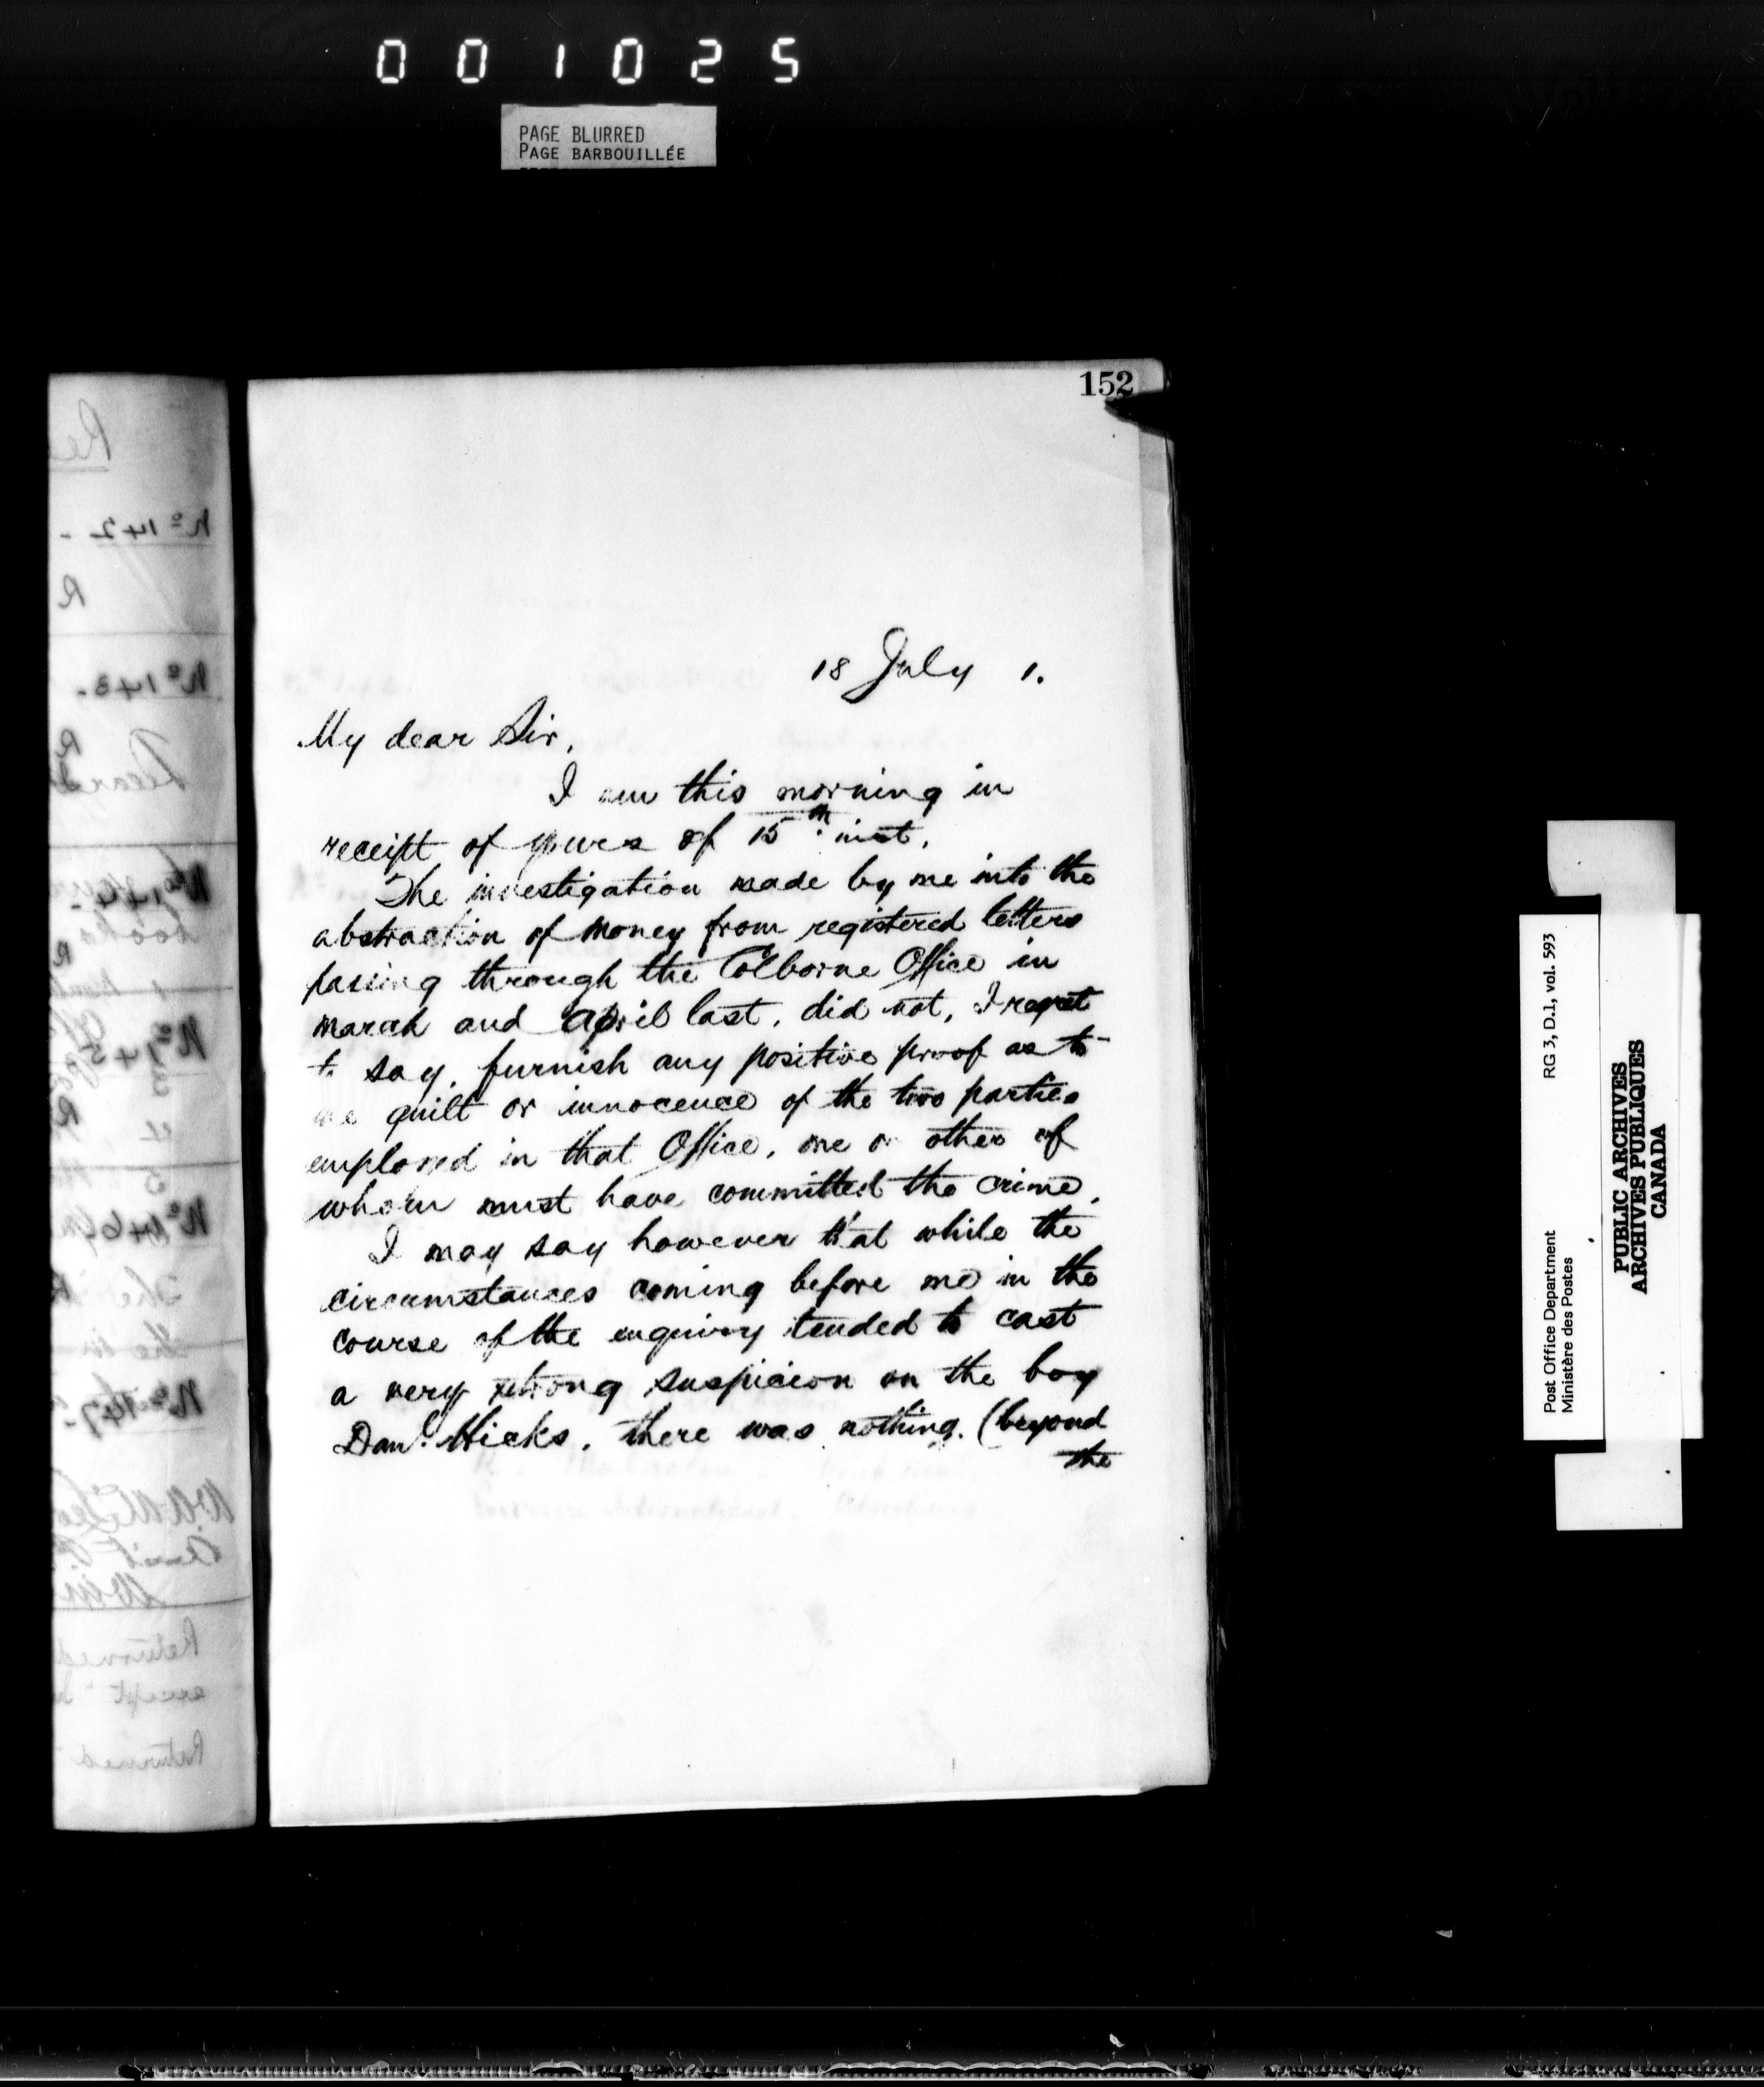 001025
PAGE BLURRED
PAGE BARBOUILLÉE
152
18 July 1.
My dear Sir,
I am this morning in
receipt of yours of 15th inst.
The investigation made by me into the
abstraction of money from registered letters
passing through the Colborne Office in
March and April last, did not, I regret
to say, furnish any positive proof as to
the guilt or innocence of the two parties
employed in that Office, one or other of
whom must have committed the crime.
I may say however that while the
circumstances coming before me in the
course of the enquiry tended to cast
a very strong suspicion on the boy
Danl. Hicks, there was nothing (beyond
the
Post Office Department RG 3, D.1, vol. 593
Ministère des Postes
PUBLIC ARCHIVES
ARCHIVES PUBLIQUES
CANADA